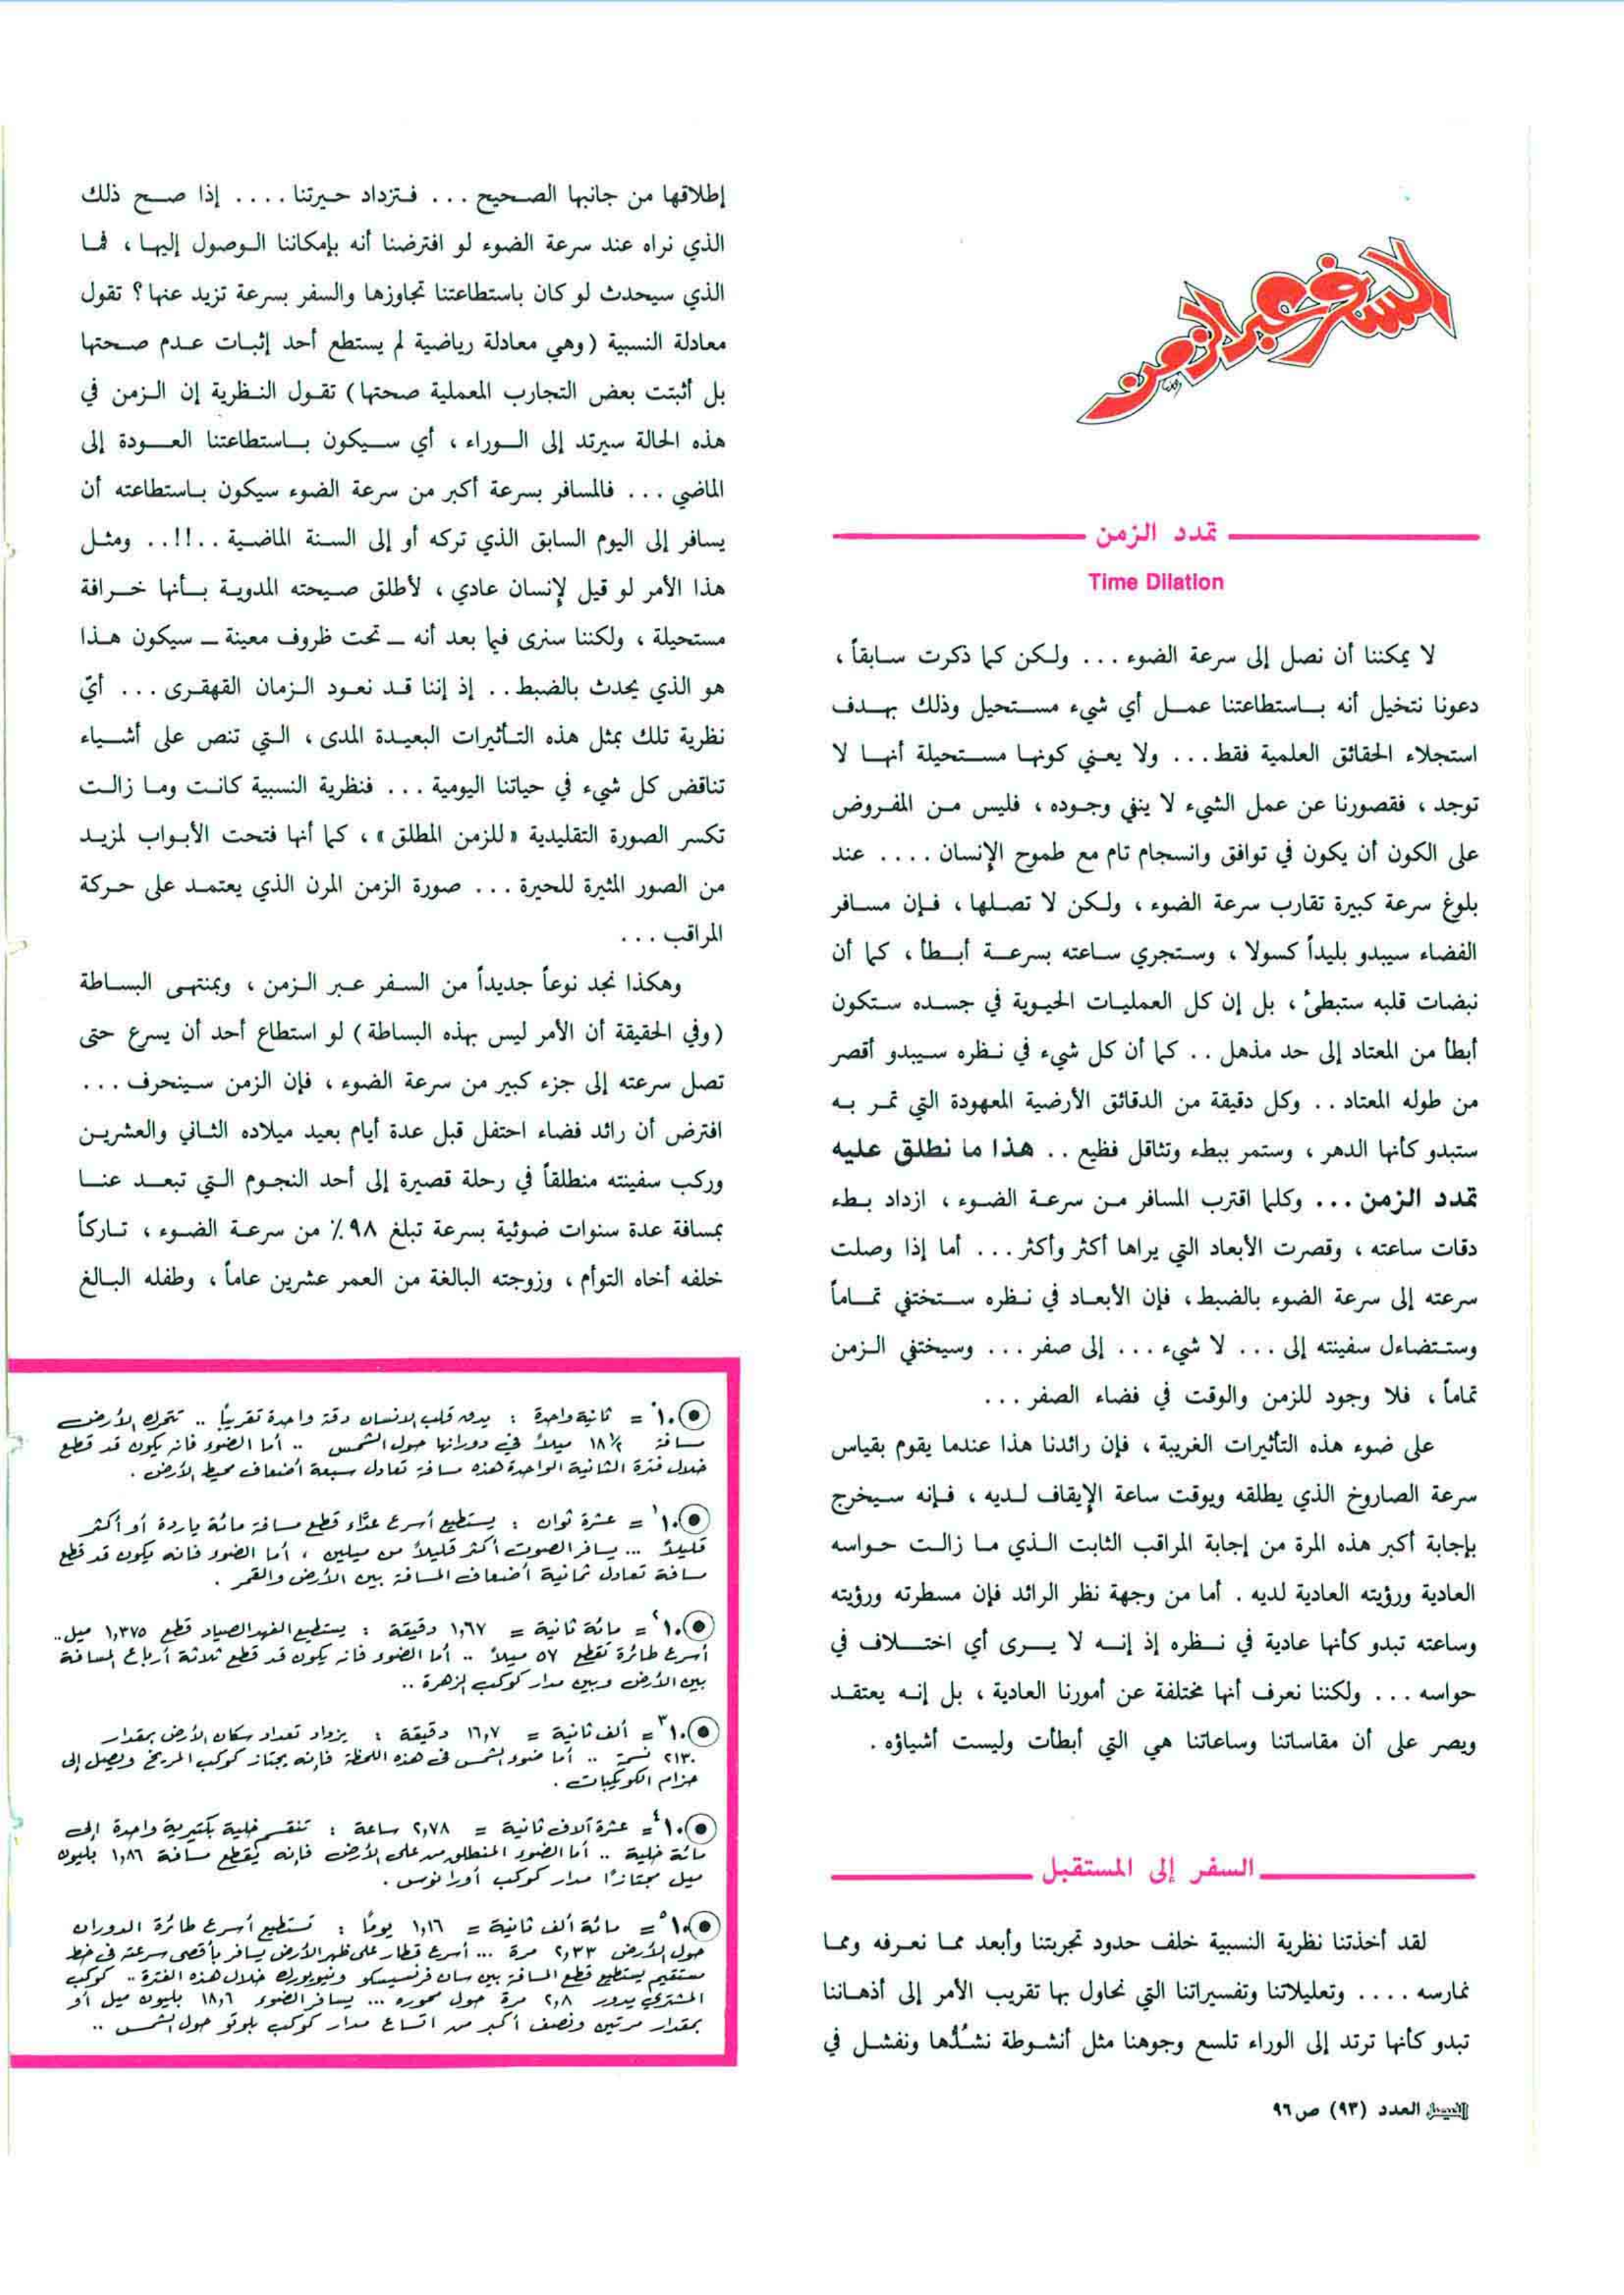 السفر عبر الزمن
تمدد الزمن
Time Dilation
لا يمكننا أن نصل إلى سرعة الضوء ... ولكن كما ذكرت سابقاً ،
دعونا نتخيل أنه باستطاعتنا عمل أي شيء مستحيل وذلك بهدف
استجلاء الحقائق العلمية فقط ... ولا يعني كونها مستحيلة أنها لا
توجد ، فقصورنا عن عمل الشيء لا ينفي وجوده ، فليس من المفروض
على الكون أن يكون في توافق وانسجام تام مع طموح الإنسان .... عند
بلوغ سرعة كبيرة تقارب سرعة الضوء ، ولكن لا تصلها ، فإن مسافر
الفضاء سيبدو بليداً كسولا ، وستجري ساعته بسرعة أبطأ ، كما أن
نبضات قلبه ستبطئ ، بل إن كل العمليات الحيوية في جسده ستكون
أبطأ من المعتاد إلى حد مذهل .. كما أن كل شيء في نظره سيبدو أقصر
من طوله المعتاد .. وكل دقيقة من الدقائق الأرضية المعهودة التي تمر به
ستبدو كأنها الدهر ، وستمر ببطء وتثاقل فظيع .. هذا ما نطلق عليه
تمدد الزمن ... وكلما اقترب المسافر من سرعة الضوء ، ازداد بطء
دقات ساعته ، وقصرت الأبعاد التي يراها أكثر وأكثر ... أما إذا وصلت
سرعته إلى سرعة الضوء بالضبط ، فإن الأبعاد في نظره ستختفي تماماً
وستتضاءل سفينته إلى ... لا شيء ... إلى صفر ... وسيختفي الزمن
تماماً ، فلا وجود للزمن والوقت في فضاء الصفر ...
على ضوء هذه التأثيرات الغريبة ، فإن رائدنا هذا عندما يقوم بقياس
سرعة الصاروخ الذي يطلقه ويوقت ساعة الإيقاف لديه ، فإنه سيخرج
بإجابة أكبر هذه المرة من إجابة المراقب الثابت الذي ما زالت حواسه
العادية ورؤيته العادية لديه . أما من وجهة نظر الرائد فإن مسطرته ورؤيته
وساعته تبدو كأنها عادية في نظره إذ إنه لا يرى أي اختلاف في
حواسه ... ولكننا نعرف أنها مختلفة عن أمورنا العادية ، بل إنه يعتقد
ويصر على أن مقاساتنا وساعاتنا هي التي أبطأت وليست أشياؤه .
السفر إلى المستقبل
لقد أخذتنا نظرية النسبية خلف حدود تجربتنا وأبعد مما نعرفه ومما
نمارسه .... وتعليلاتنا وتفسيراتنا التي نحاول بها تقريب الأمر إلى أذهاننا
تبدو كأنها ترتد إلى الوراء تلسع وجوهنا مثل أنشوطة نشُدُّها ونفشل في
الفيصل العدد (٩٣) ص٩٦
إطلاقها من جانبها الصحيح ... فتزداد حيرتنا .... إذا صح ذلك
الذي نراه عند سرعة الضوء لو افترضنا أنه بإمكاننا الوصول إليها ، فما
الذي سيحدث لو كان باستطاعتنا تجاوزها والسفر بسرعة تزيد عنها ؟ تقول
معادلة النسبية (وهي معادلة رياضية لم يستطع أحد إثبات عدم صحتها
بل أثبتت بعض التجارب المعملية صحتها) تقول النظرية إن الزمن في
هذه الحالة سيرتد إلى الوراء ، أي سيكون باستطاعتنا العودة إلى
الماضي ... فالمسافر بسرعة أكبر من سرعة الضوء سيكون باستطاعته أن
يسافر إلى اليوم السابق الذي تركه أو إلى السنة الماضية ..!!.. ومثل
هذا الأمر لو قيل لإنسان عادي ، لأطلق صيحته المدوية بأنها خرافة
مستحيلة ، ولكننا سنرى فيما بعد أنه ــ تحت ظروف معينة ــ سيكون هذا
هو الذي يحدث بالضبط .. إذ إننا قد نعود الزمان القهقرى ... أيّ
نظرية تلك بمثل هذه التأثيرات البعيدة المدى ، التي تنص على أشياء
تناقض كل شيء في حياتنا اليومية ... فنظرية النسبية كانت وما زالت
تكسر الصورة التقليدية «للزمن المطلق» ، كما أنها فتحت الأبواب لمزيد
من الصور المثيرة للحيرة ... صورة الزمن المرن الذي يعتمد على حركة
المراقب ...
وهكذا نجد نوعاً جديداً من السفر عبر الزمن ، وبمنتهى البساطة
(وفي الحقيقة أن الأمر ليس بهذه البساطة) لو استطاع أحد أن يسرع حتى
تصل سرعته إلى جزء كبير من سرعة الضوء ، فإن الزمن سينحرف ...
افترض أن رائد فضاء احتفل قبل عدة أيام بعيد ميلاده الثاني والعشرين
وركب سفينته منطلقاً في رحلة قصيرة إلى أحد النجوم التي تبعد عنا
بمسافة عدة سنوات ضوئية بسرعة تبلغ ٩٨٪ من سرعة الضوء ، تاركاً
خلفه أخاه التوأم ، وزوجته البالغة من العمر عشرين عاماً ، وطفله البالغ
١٠⁰ = ثانية واحدة : يدق قلب الانسان دقة واحدة تقريباً .. تتحرك الأرض
مسافة ١٨½ ميلاً في دورانها حول الشمس .. أما الضوء فانه يكون قد قطع
خلال فترة الثانية الواحدة هذه مسافة تعادل سبعة أضعاف محيط الأرض .
١٠¹ = عشرة ثوان : يستطيع أسرع عدّاء قطع مسافة مائة ياردة أو أكثر
قليلاً ... يسافر الصوت أكثر قليلاً من ميلين ، أما الضوء فانه يكون قد قطع
مسافة تعادل ثمانية أضعاف المسافة بين الأرض والقمر .
١٠² = مائة ثانية = ١,٦٧ دقيقة : يستطيع الفهد الصياد قطع ١,٣٧٥ ميل ..
أسرع طائرة تقطع ٥٧ ميلاً .. أما الضوء فانه يكون قد قطع ثلاثة أرباع المسافة
بين الأرض وبين مدار كوكب الزهرة ..
١٠³ = ألف ثانية = ١٦,٧ دقيقة : يزداد تعداد سكان الأرض بمقدار
٢١٣٠ نسمة .. أما ضوء الشمس في هذه اللحظة فإنه يجتاز كوكب المريخ ويصل إلى
حزام الكويكبات .
١٠⁴ = عشرة آلاف ثانية = ٢,٧٨ ساعة : تنقسم خلية بكتيرية واحدة إلى
مائة خلية .. أما الضوء المنطلق من على الأرض فإنه يقطع مسافة ١,٨٦ بليون
ميل مجتازًا مدار كوكب أورانوس .
١٠⁵ = مائة ألف ثانية = ١,١٦ يومًا : تستطيع أسرع طائرة الدوران
حول الأرض ٢,٣٣ مرة ... أسرع قطار على ظهر الأرض يسافر بأقصى سرعته في خط
مستقيم يستطيع قطع المسافة بين سان فرنسيسكو ونيويورك خلال هذه الفترة .. كوكب
المشتري يدور ٢,٨ مرة حول محوره ... يسافر الضوء ١٨,٦ بليون ميل أو
بمقدار مرتين ونصف أكبر من اتساع مدار كوكب بلوتو حول الشمس ..